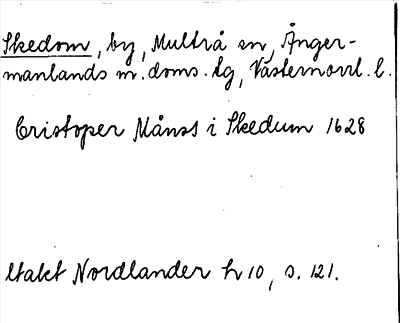 Skedom, by, Multrå sn, Ånger-
manlands m. doms. tg, Västernorrl. l.
Cristoper Månss i Skedum 1628
Utakt Nordlander h 10, s. 121.